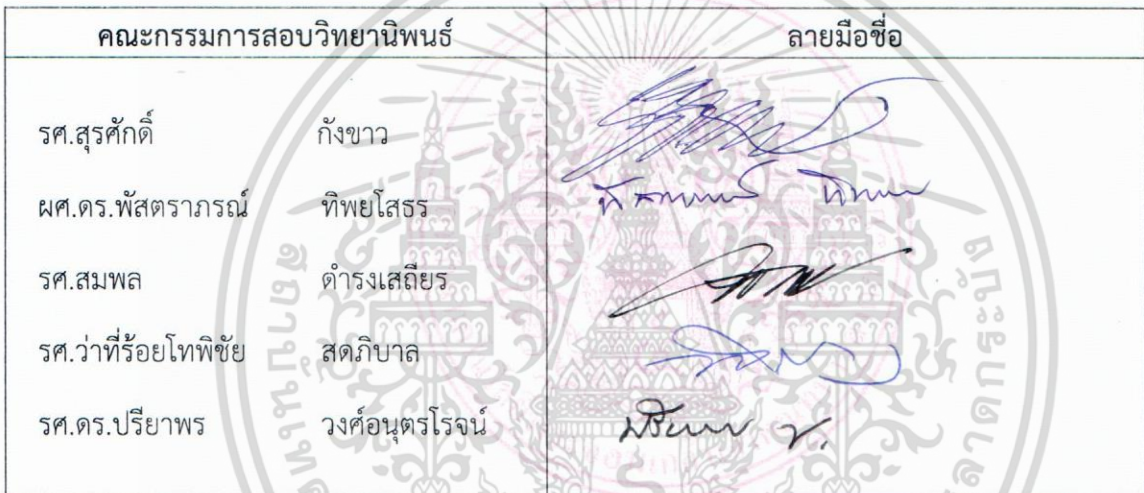 คณะกรรมการสอบวิทยานิพนธ์ ลายมือชื่อ
รศ.สุรศักดิ์ กังขาว
ผศ.ดร.พัสตราภรณ์ ทิพยโสธร
รศ.สมพล ดำรงเสถียร
รศ.ว่าที่ร้อยโทพิชัย สดภิบาล
รศ.ดร.ปรียาพร วงศ์อนุตรโรจน์